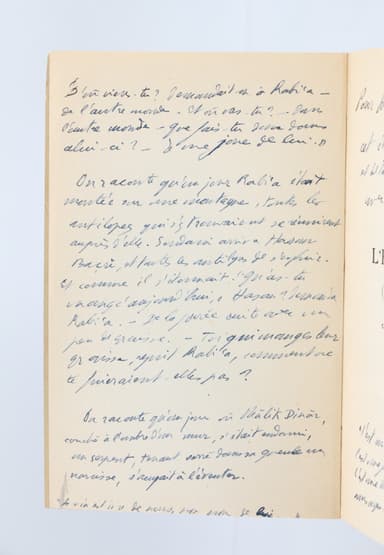 D'où viens-tu? Demandait-on à Rabi'a —
de l'autre monde. Et où vas-tu? — Dans
l'autre monde — Que fais-tu donc dans
celui-ci? — Je me joue de lui.»
On raconte qu'un jour Rabi'a était
montée sur une montagne, toutes les
antilopes qui s'y trouvaient se réunirent
auprès d'elle. Soudain arriva Hassan
Baçri, et toutes les antilopes de s'enfuir.
Et comme il s'étonnait: Qu'as-tu
mangé aujourd'hui, ô Hasan? demanda
Rabi'a. — De la purée cuite avec un
peu de graisse. — Toi qui manges leur
graisse, reprit Rabi'a, comment ne
te fuiraient-elles pas?
On raconte qu'un jour où Mâlik Dinâr,
couché à l'ombre d'un mur, s'était endormi,
un serpent, tenant dans sa gueule un
narcisse, s'occupait à l'éventer.
de nous, non de lui
Pour
et
L'